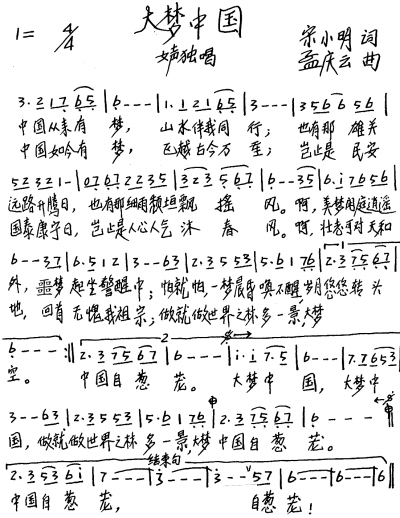 大梦中国
1= 4/4
女声独唱
宋小明 词
孟庆云 曲
3. 2 1 7 6 5 | 6 - - - | 1. 1 2 1 6 5 | 3 - - - | 3 5 6 6 5 6 |
中国从来有 梦， 山水伴我同 行； 也有那 雄关
中国如今有 梦， 飞越古今万 里； 岂止是 民安
5 2 3 2 1 - | 0 7 6 7 2 2 3 5 | 3 2 3 5 6 7 | 6 - - 3 5 | 6. i 7 6 5 6 |
远路开腾日，也有那细雨 垣飘 摇 风。啊，美梦 庭逍遥
国泰康宁日，岂止是人心人气 沐 春 风。啊，壮志 对天和
6 - - 3 7 | 6. 5 1 2 | 3 - - 6 3 | 2. 3 5 5 3 | 5. 6 1 7 6 | 2. 3 7 5 6 7 |
外，噩梦 起坐警醒中；怕就怕，一梦晨昏唤不醒，岁月悠悠转头
地， 回首 无愧我祖宗；做就做世界之林多一景，大梦
6 - - - :‖ 2. 3 7 5 6 7 | 6 - - - | i. i 7. 5 | 6 - - - | 7. 7 6 5 3 |
空。 中国自葱 茏。 大梦中 国， 大梦中
3 - - 6 3 | 2. 3 5 5 3 | 5. 6 1 7 6 | 2. 3 7 5 6 7 | 6 - - - |
国，做就做世界之林 多一景，大梦中国自葱 茏。
结束句
2. 3 5 3 6 i | 7 - - - | 3 - - - | 3 - - 5 7 | 6 - - - | 6 - - - | 6 ‖
中国自 葱 茏， 自葱 茏！